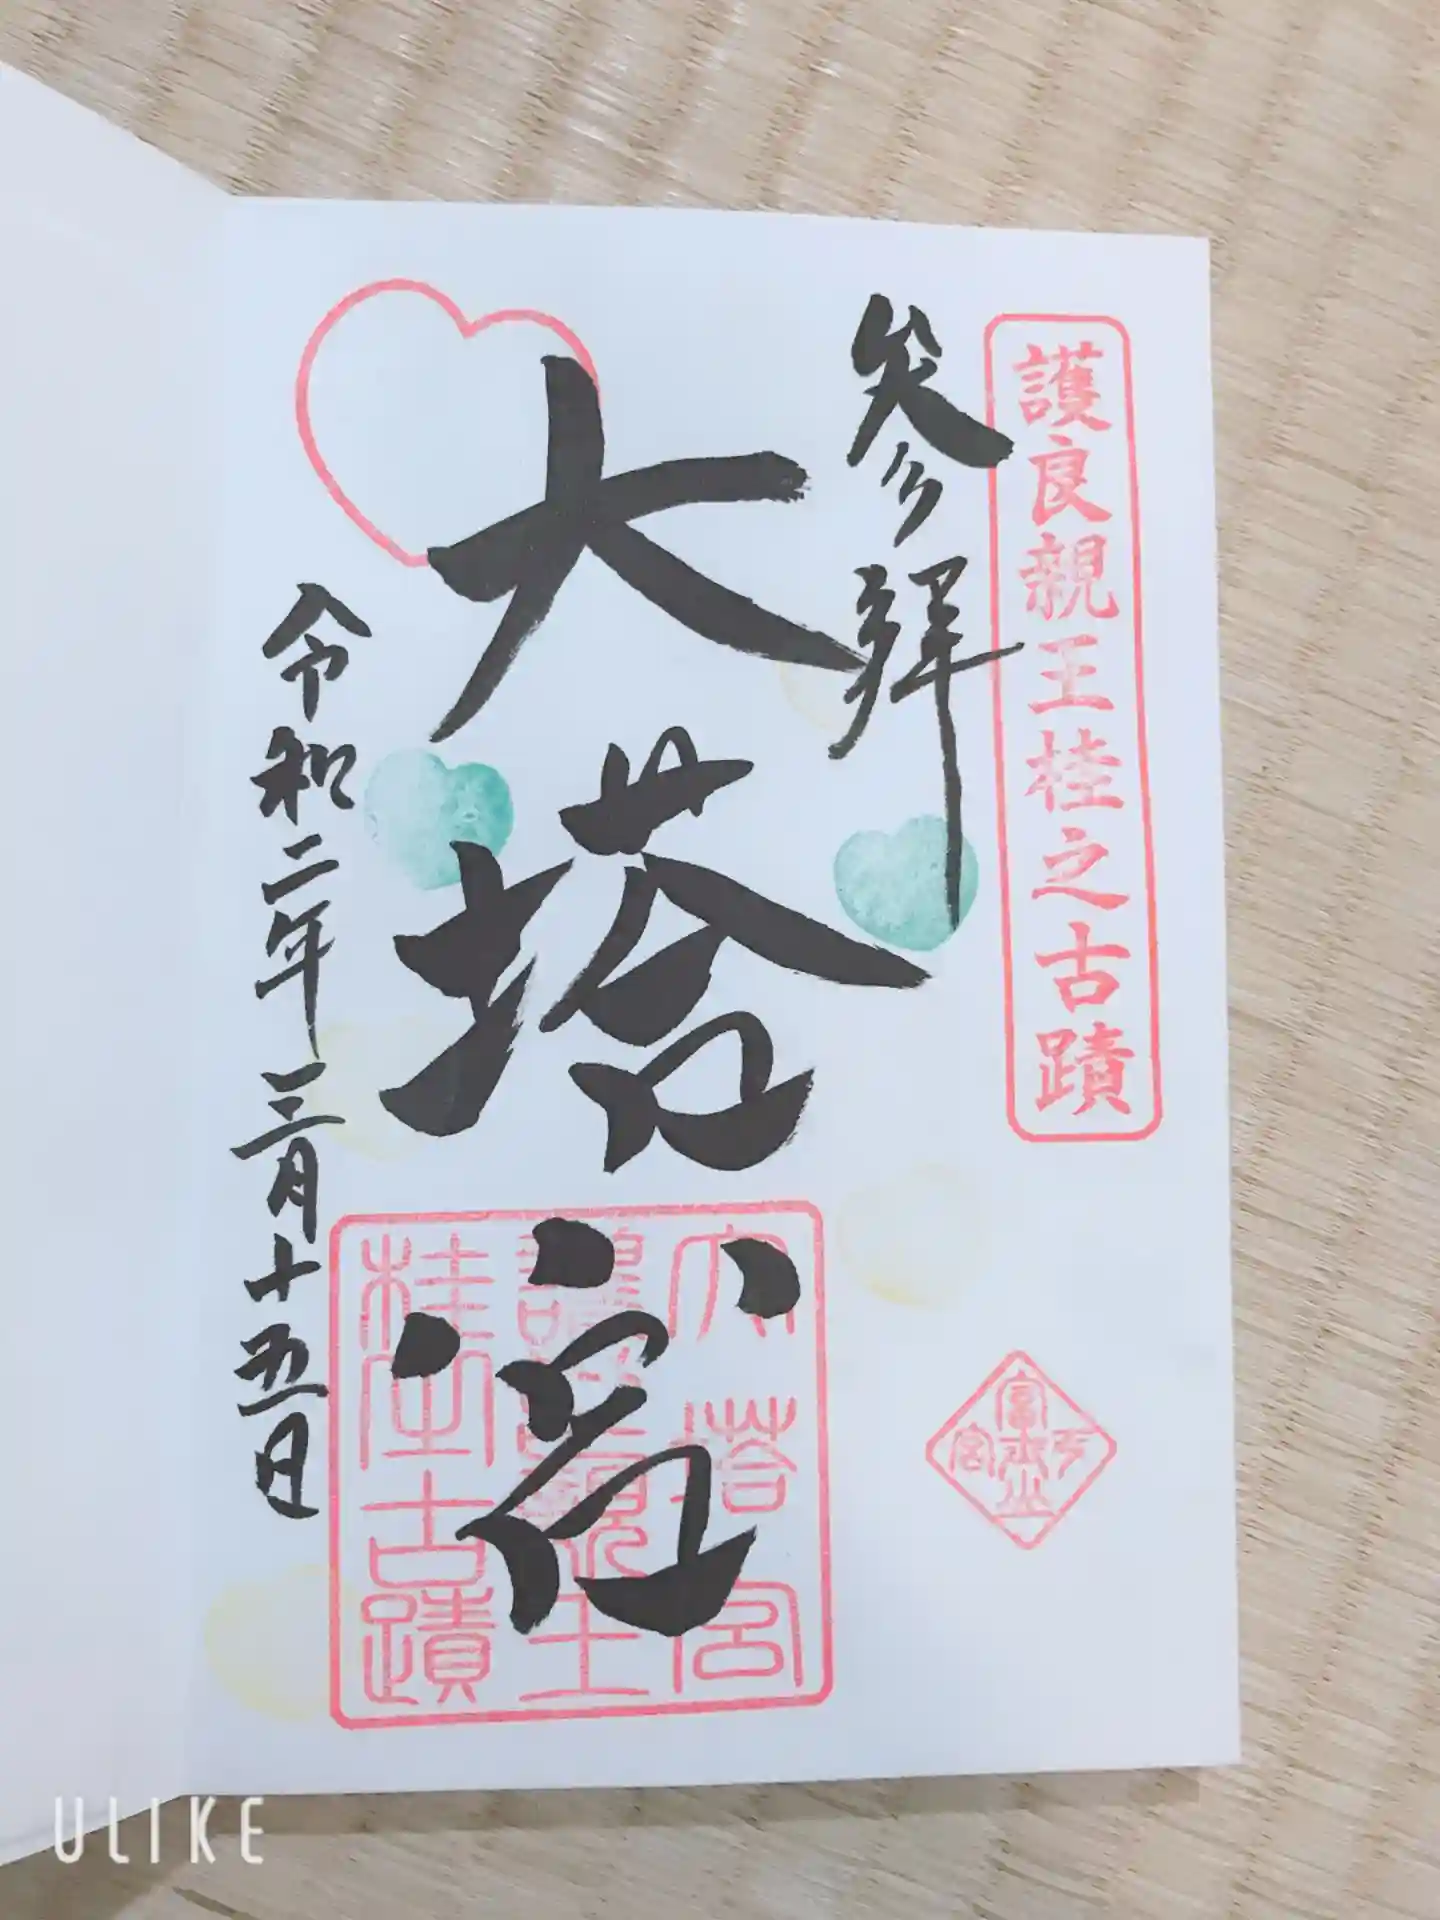 護良親王桂之古蹟
参拝
大塔宮
令和二年三月十五日
大塔宮
護良親王
桂古蹟
ULIKE